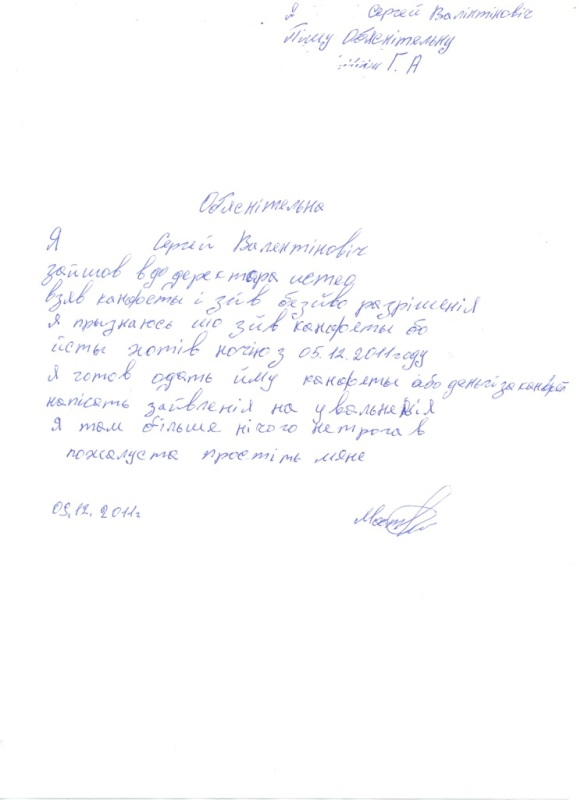 Я Сергей Валінтіновіч
Пішу Обяснітельну
Г. А
Обяснітельна
Я Сергей Валентіновіч
зайшов в до деректора
взяв канфеты і зїв безйво разрішенія
я прызнаюсь що зїв канфеты бо
йісты хотів ночію з 05.12.2011 году
я готов одать йму канфеты або деньгі за канфети
напісать заївленія на увальненія
Я там більше нічого нетрогав
пожалуста простіть мяне
05.12.2011г